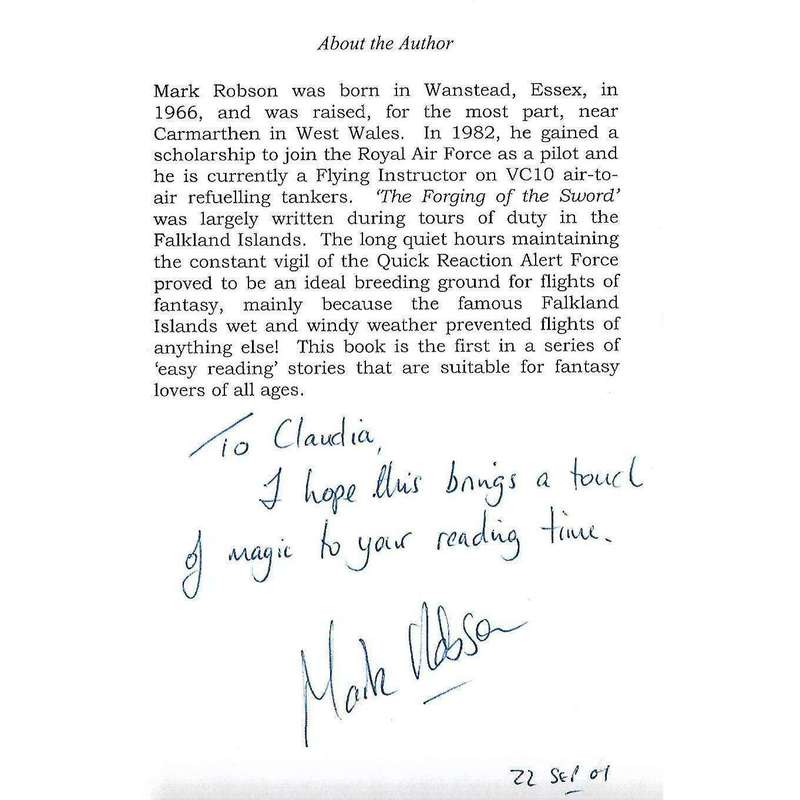 About the Author
Mark Robson was born in Wanstead, Essex, in
1966, and was raised, for the most part, near
Carmarthen in West Wales. In 1982, he gained a
scholarship to join the Royal Air Force as a pilot and
he is currently a Flying Instructor on VC10 air-to-
air refuelling tankers. ‘The Forging of the Sword’
was largely written during tours of duty in the
Falkland Islands. The long quiet hours maintaining
the constant vigil of the Quick Reaction Alert Force
proved to be an ideal breeding ground for flights of
fantasy, mainly because the famous Falkland
Islands wet and windy weather prevented flights of
anything else! This book is the first in a series of
‘easy reading’ stories that are suitable for fantasy
lovers of all ages.
To Claudia,
I hope this brings a touch
of magic to your reading time.
Mark Robson
22 SEP 01